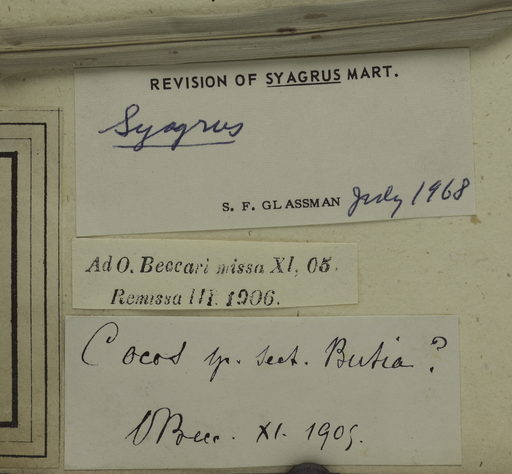 REVISION OF SYAGRUS MART.
Syagrus
S. F. GLASSMAN July 1968
Ad O. Beccari missa XI, 05.
Remissa III. 1906.
Cocos sp. sect. Butia?
OBecc. XI. 1905.